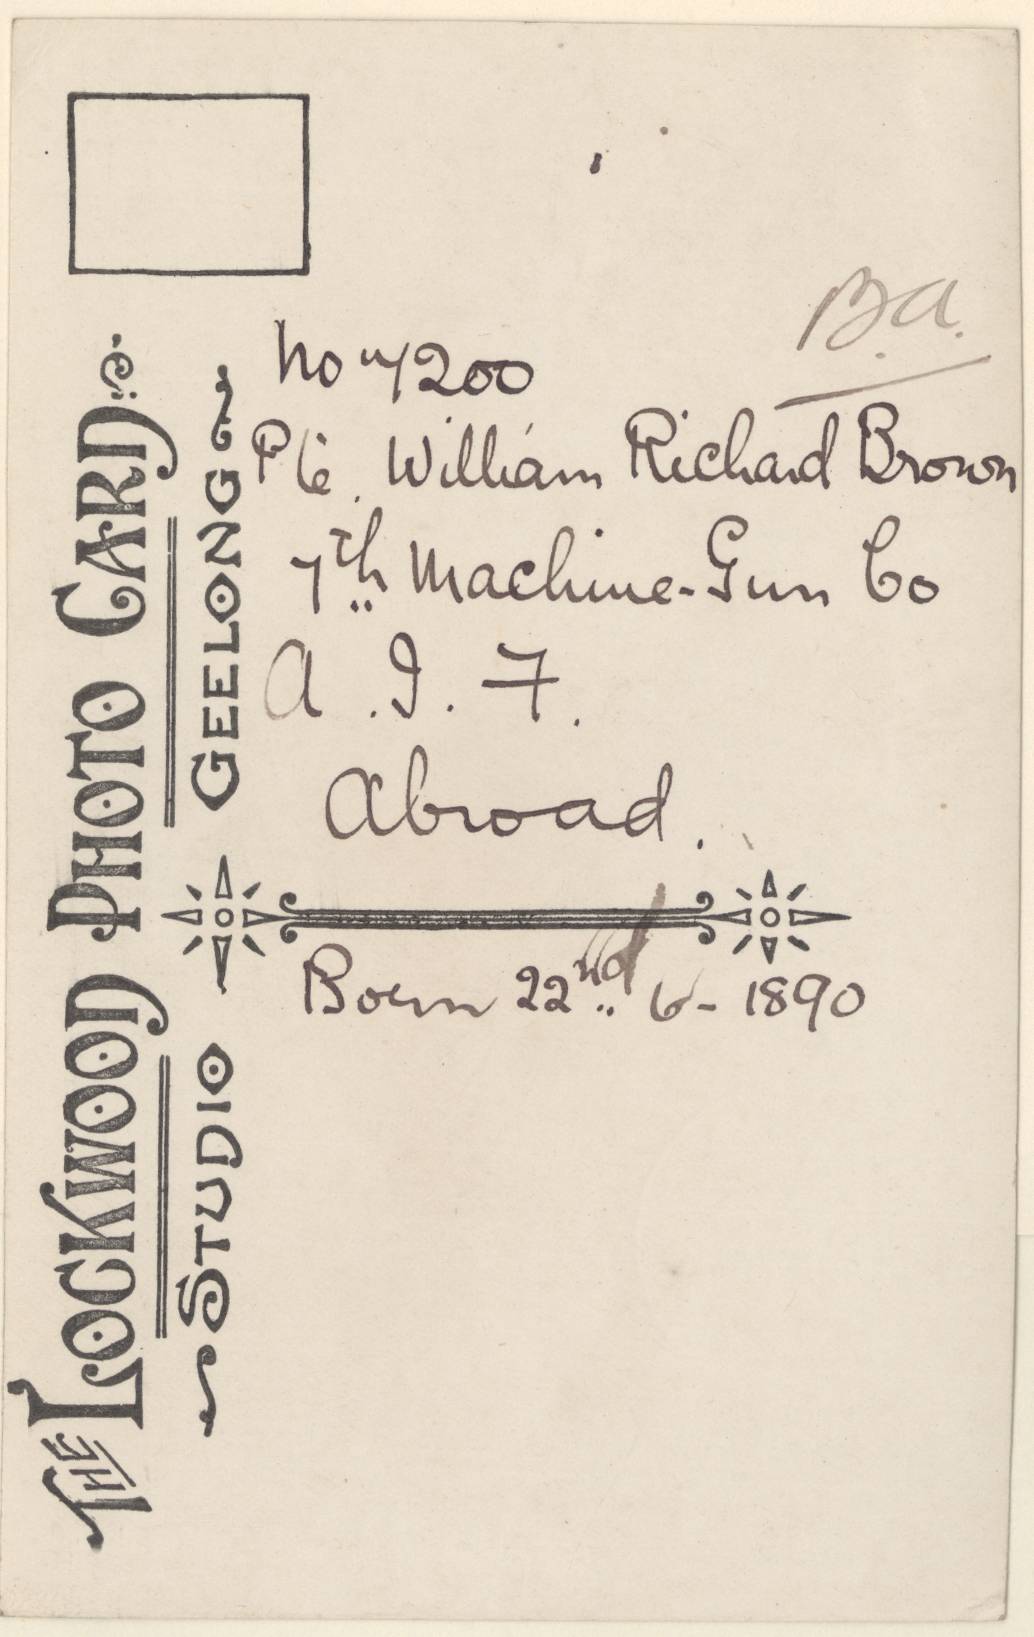 B.a.
No 7200
Pte. William Richard Brown
7th Machine-Gun Co
A.I.F.
Abroad.
Born 22nd 6-1890
THE LOCKWOOD PHOTO CARD
STUDIO GEELONG